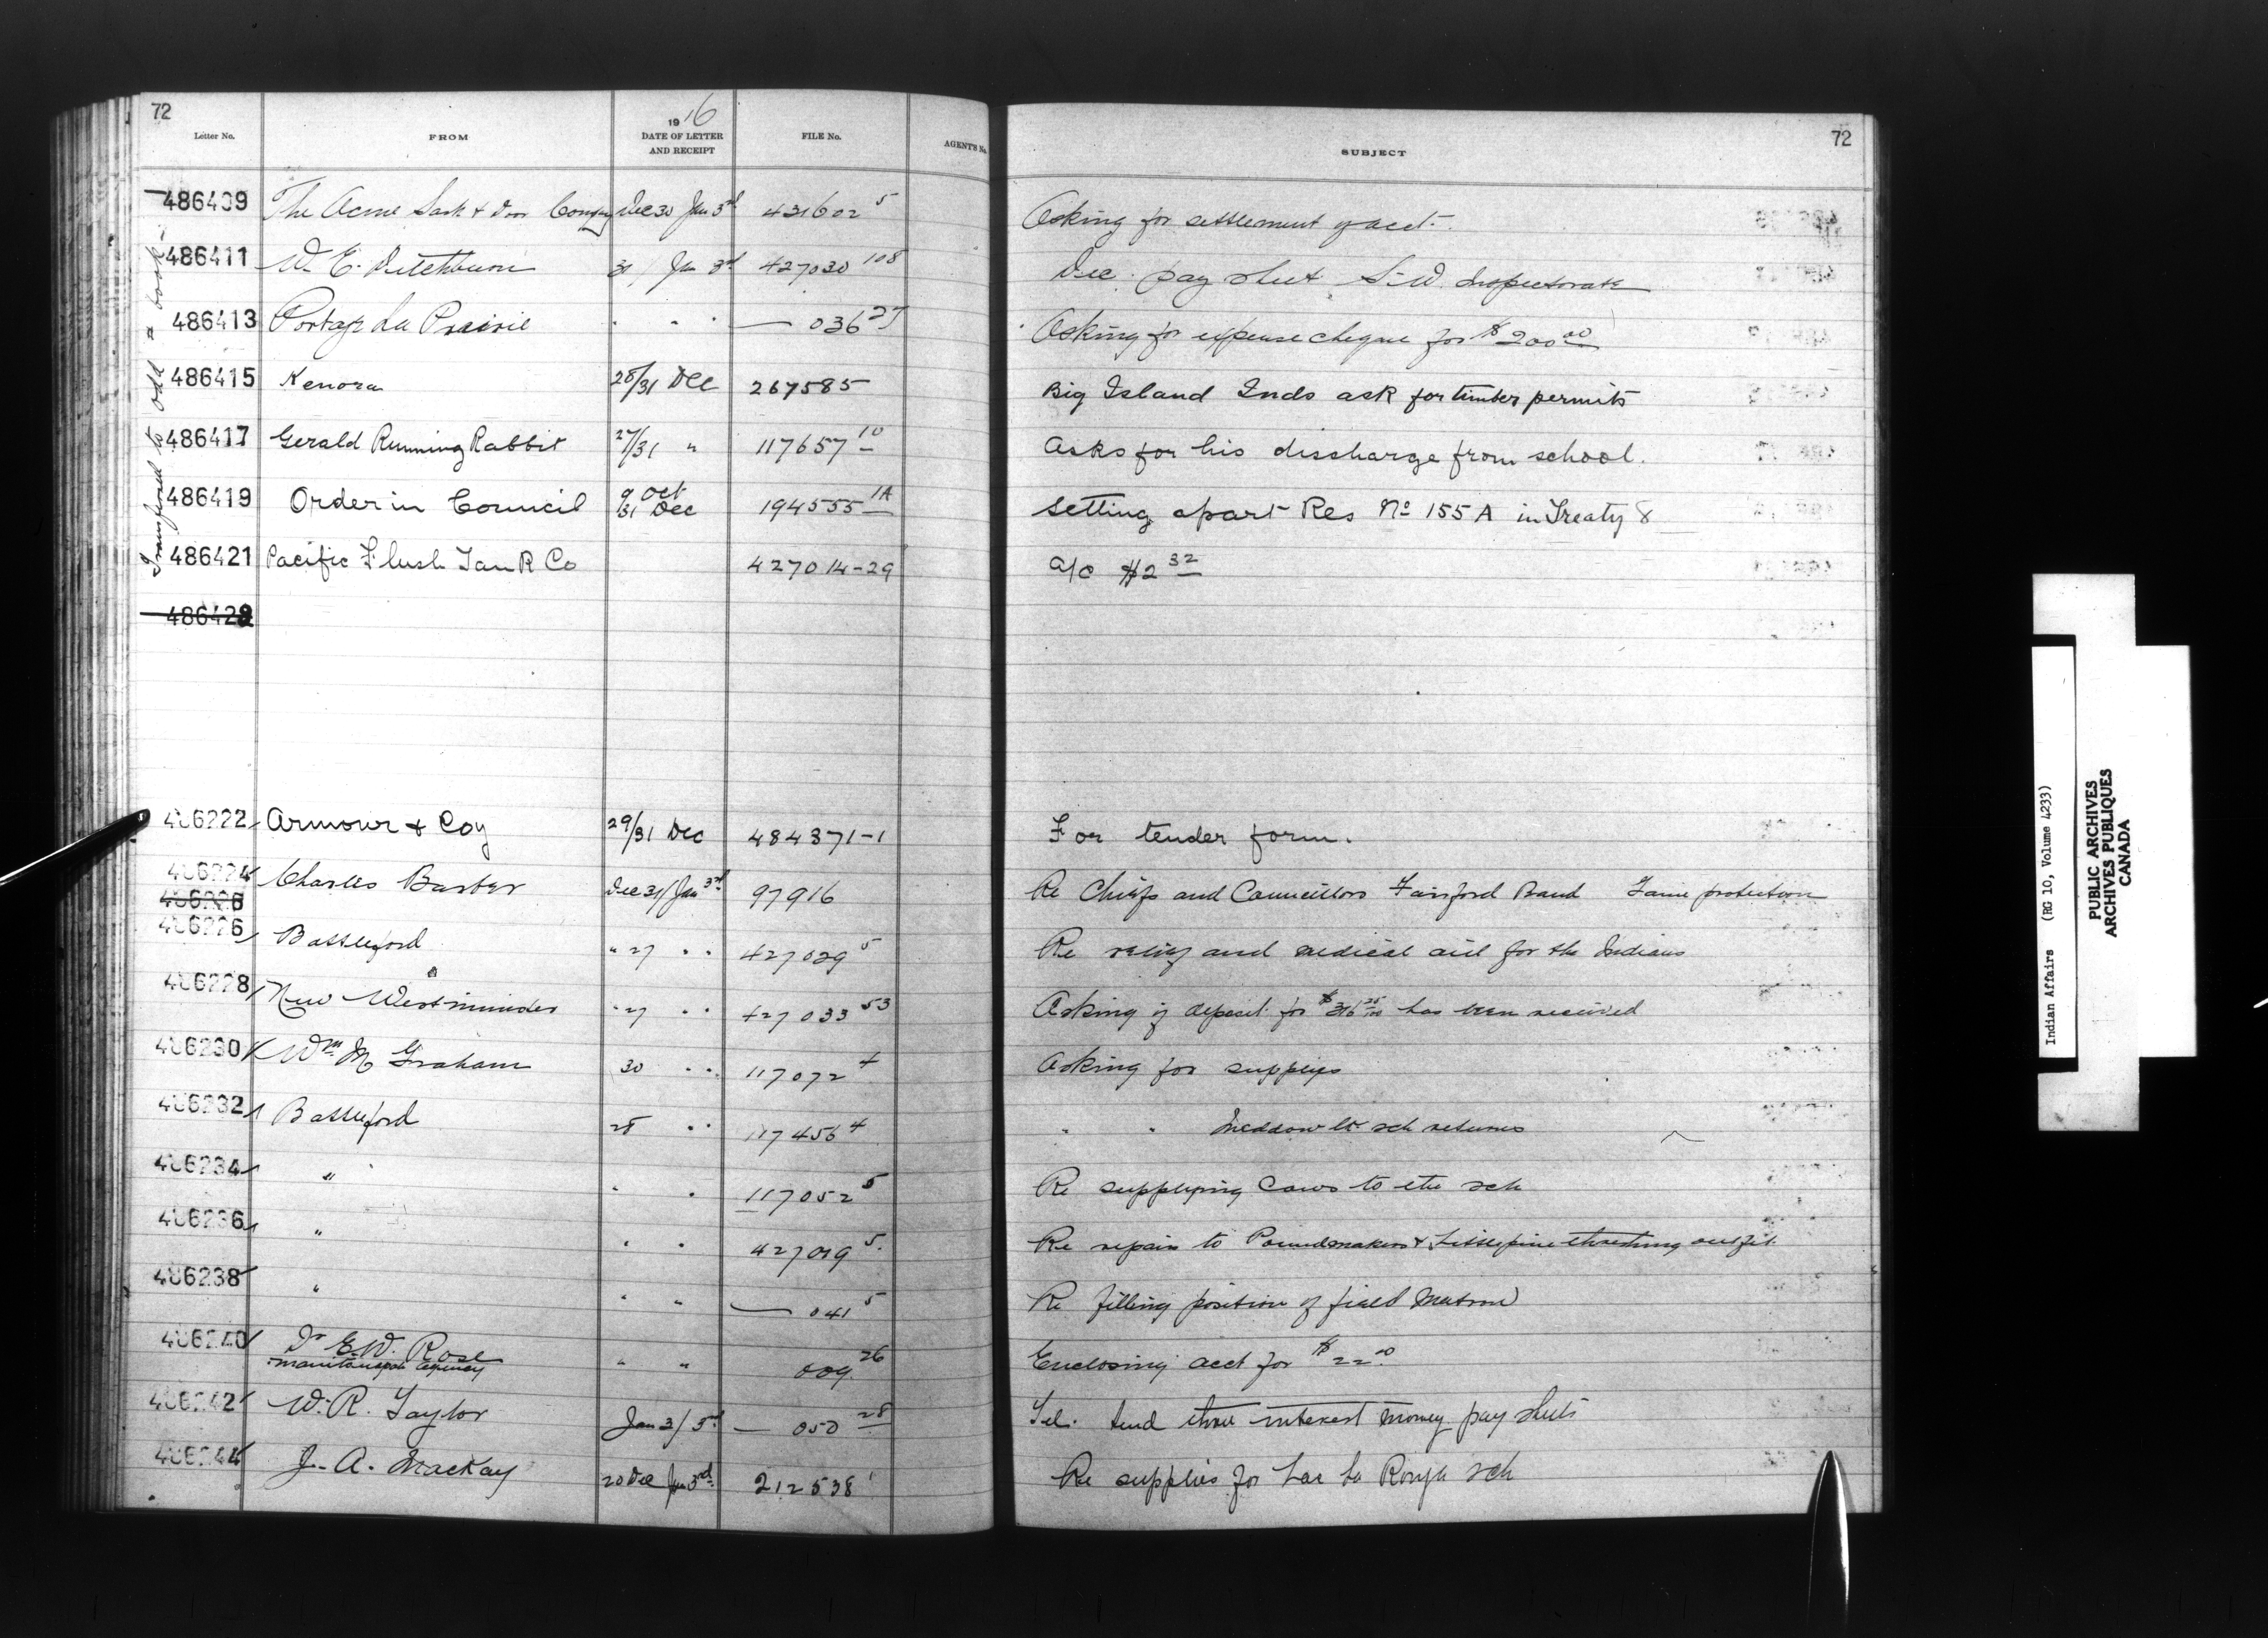 72
72
Letter No. FROM 1916 DATE OF LETTER AND RECEIPT FILE No. AGENT'S No. SUBJECT
Transferred to odd a book
486409 The Acme Sash & Door Company Dec 30 Jan 3rd 431602 5 Asking for settlement of acct.
486411 W. E. Ditchburn 31 / Jan 3rd 427030 108 Dec. pay sheet S.W. Inspectorate
486413 Portage La Prairie " " " — 036 27 Asking for expense cheque for $200 00
486415 Kenora 28/31 Dec 267585 Big Island Inds ask for timber permits
486417 Gerald Running Rabbit 27/31 " 117657 10 Asks for his disscharge from school.
486419 Order in Council 9 Oct 31 Dec 194555 1A Setting apart Res No 155 A in Treaty 8
486421 Pacific Flush Tank Co 427014-29 a/c $2 32
486423
406222 Armour & Coy 29/31 Dec 484371-1 For tender form.
406224 Charles Barber Dec 31/Jan 3rd 97916 Re Chiefs and Councillors Fairford Band Game protection
406226
406226 Battleford " 27 " " 427029 5 Re relief and medical aid for the Indians
406228 New Westminister " 27 " " 427033 53 Asking if deposit for $316 25/100 has been received
406230 Wm M Graham 30 " " 117072 4 Asking for supplies
406232 Battleford 28 " " 117456 4 " " Meddow Lk sch returns
406234 " " " 117052 5 Re supplying cows to the sch
406236 " " " 427019 5 Re repairs to Poundmakers & Littlepine threshing outfit
406238 " " " — 041 5 Re filling position of field Matron
406240 Dr E. W. Rose Manitowapah Agency " " 009 26 Enclosing acct for $22 00
406242 W. R. Taylor Jan 3/3rd — 050 28 Tel. Send three interest money pay sheets
406244 J. A. MacKay 20 Dec Jan 3rd 212538 1 Re supplies for Lac La Ronge sch
Indian Affairs (RG 10, Volume 4233)
PUBLIC ARCHIVES
ARCHIVES PUBLIQUES
CANADA